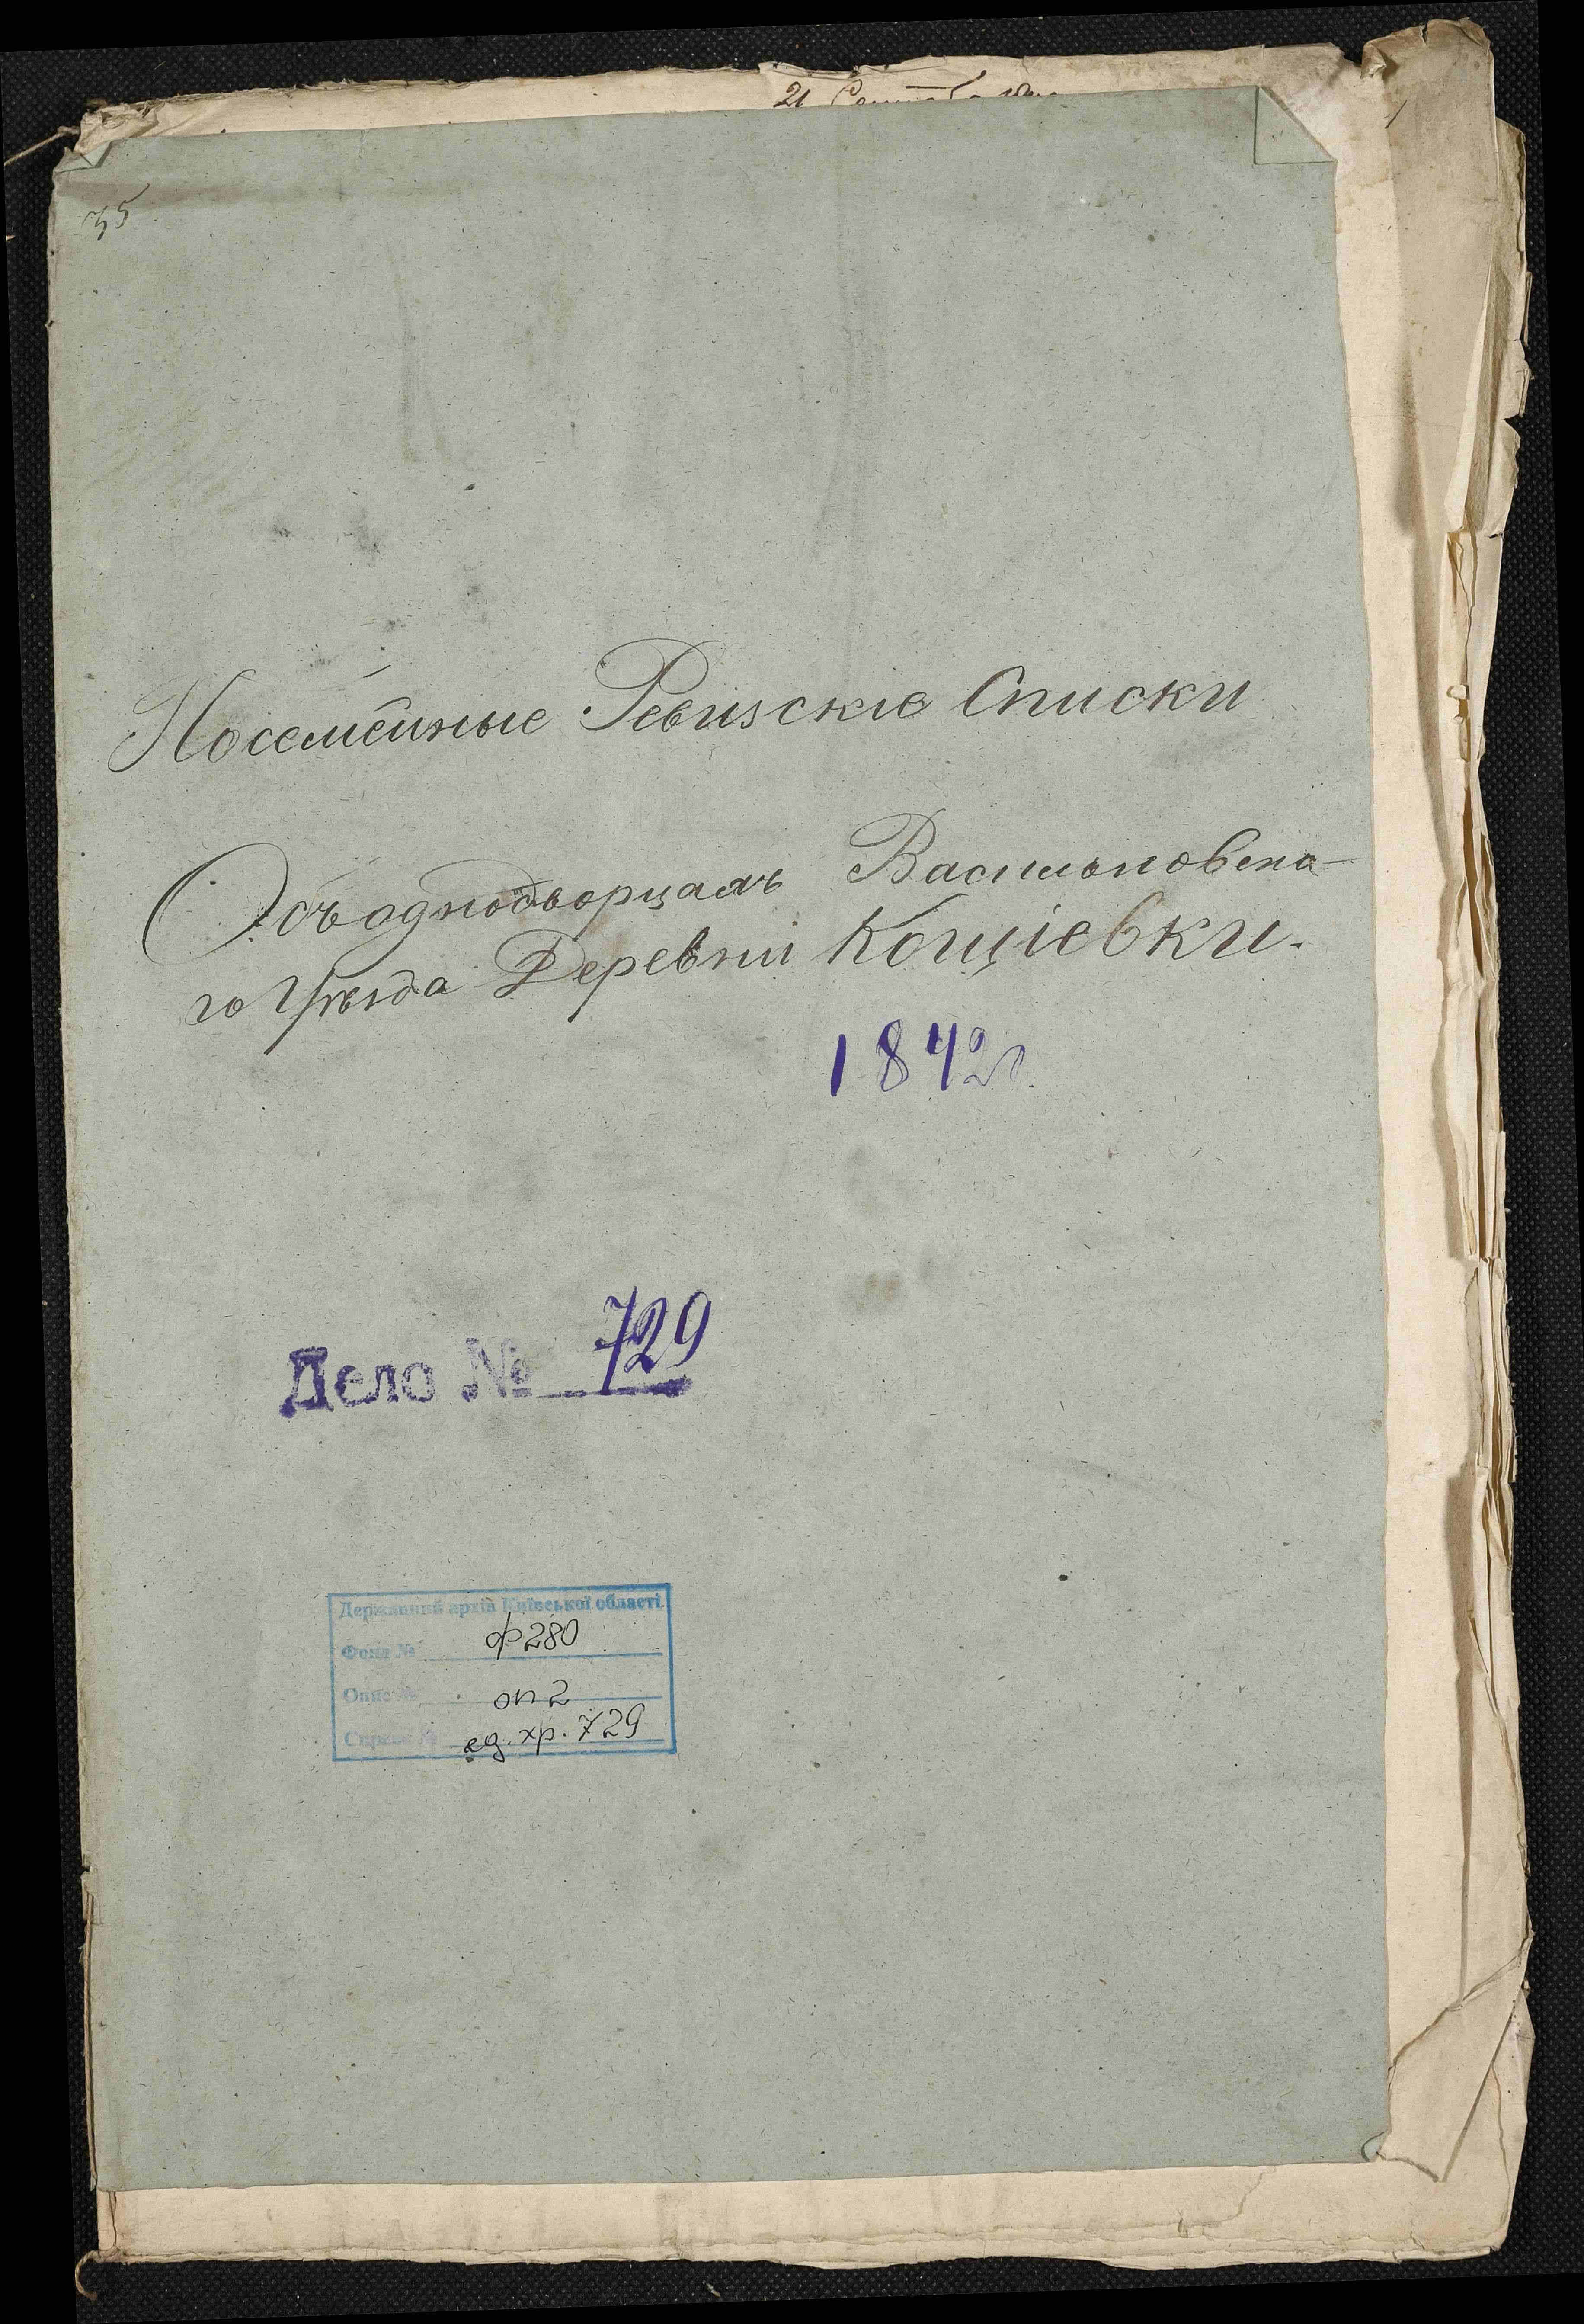 21
35
Посемейные Ревизскіе Списки
Объ однодворцахъ Васильковска-
го Уѣзда Деревни Кощіевки.
1842 г.
Дело № 729
Державний архів Київської області
Фонд № ф 280
Опис № оп 2
Справа № ед. хр. 729